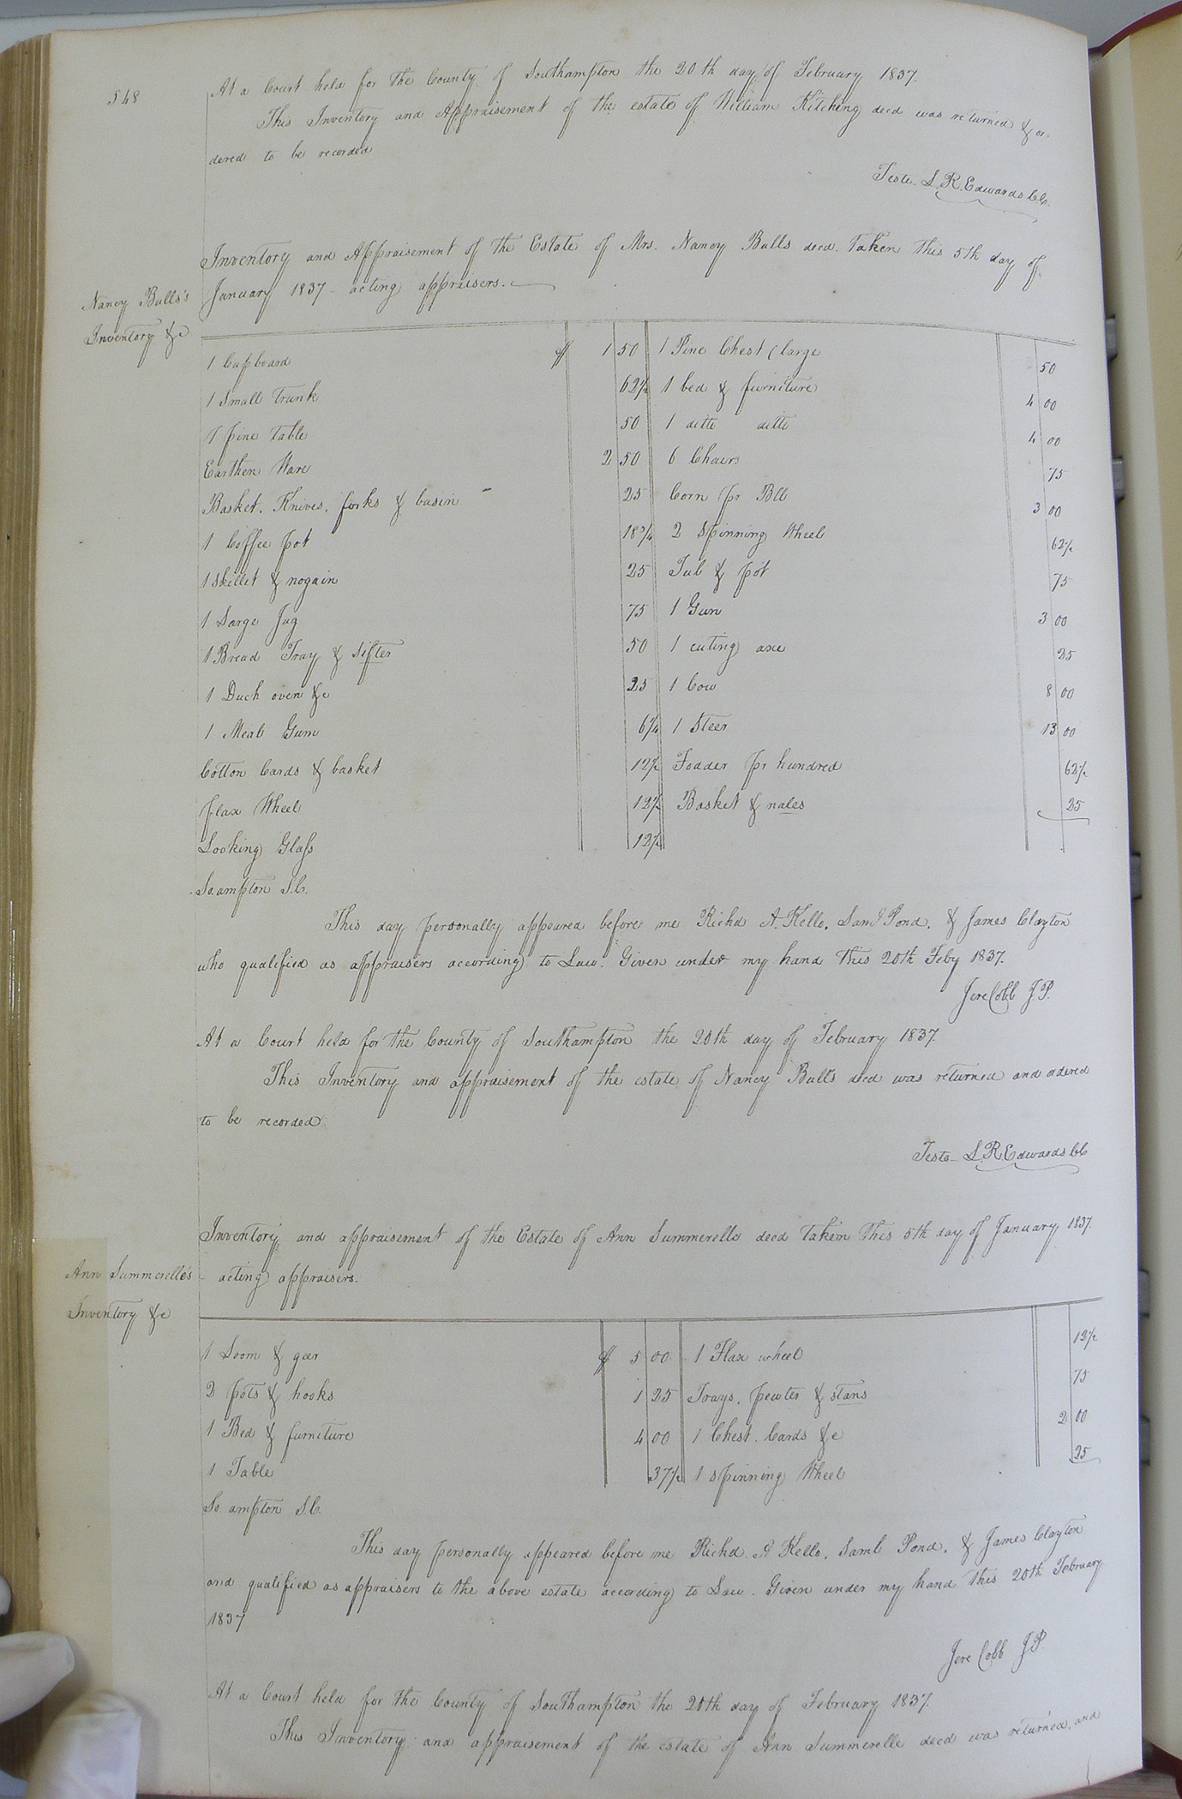 548
At a Court held for the County of Southampton the 20th day of February 1837.
This Inventory and Appraisement of the estate of William Kitching decd was returned & or-
dered to be recorded
Teste L. R. Edwards CC.
Inventory and Appraisement of the Estate of Mrs. Nancy Bulls decd. taken this 5th day of
January 1837 - acting appraisers.
Nancy Bulls's
Inventory &c
1 Cupboard $ 1 50 1 Pine Chest (large 50
1 Small Trunk 62½ 1 bed & furniture 4 00
1 pine table 50 1 ditto ditto 4 00
Earthen Ware 2 50 6 Chairs 75
Basket, Knives, forks & basin 25 Corn pr Bll 3 00
1 Coffee pot 18¾ 2 Spinning Wheel 62½
1 Skillet & nogain 25 Tub & pot 75
1 Large Jug 75 1 Gun 3 00
1 Bread Tray & sifter 50 1 cuting axe 25
1 Duch oven &c 25 1 Cow 8 00
1 Meal Gum 6¼ 1 Steer 13 00
Cotton Cards & basket 12½ Fodder pr hundred 62½
flax Wheel 12½ Basket & nales 25
Looking Glass 12½
So.ampton S.C.
This day personally appeared before me Richd A. Kello, Saml Pond, & James Clayton
who qualified as appraisers according to Law. Given under my hand this 20th Feby 1837.
Jere Cobb J.P.
At a Court held for the County of Southampton the 20th day of February 1837.
This Inventory and appraisement of the estate of Nancy Bulls decd was returned and ordered
to be recorded
Teste L. R Edwards CC
Inventory and appraisement of the Estate of Ann Summerelle decd taken this 5th day of January 1837.
- acting appraisers.
Ann Summerelle's
Inventory &c
1 Loom & gear $ 5 00 1 Flax wheel 12½
2 pots & hooks 1 25 Trays, pewter & stans 75
1 Bed & furniture 4 00 1 Chest, Cards &c 2 00
1 Table 37½ 1 spinning Wheel 25
So.ampton S.C.
This day personally appeared before me Richd A Kello, Saml Pond, & James Clayton
and qualified as appraisers to the above estate according to Law. Given under my hand this 20th February
1837
Jere Cobb J.P.
At a Court held for the County of Southampton the 20th day of February 1837.
This Inventory and appraisement of the estate of Ann Summerelle decd was returned, and